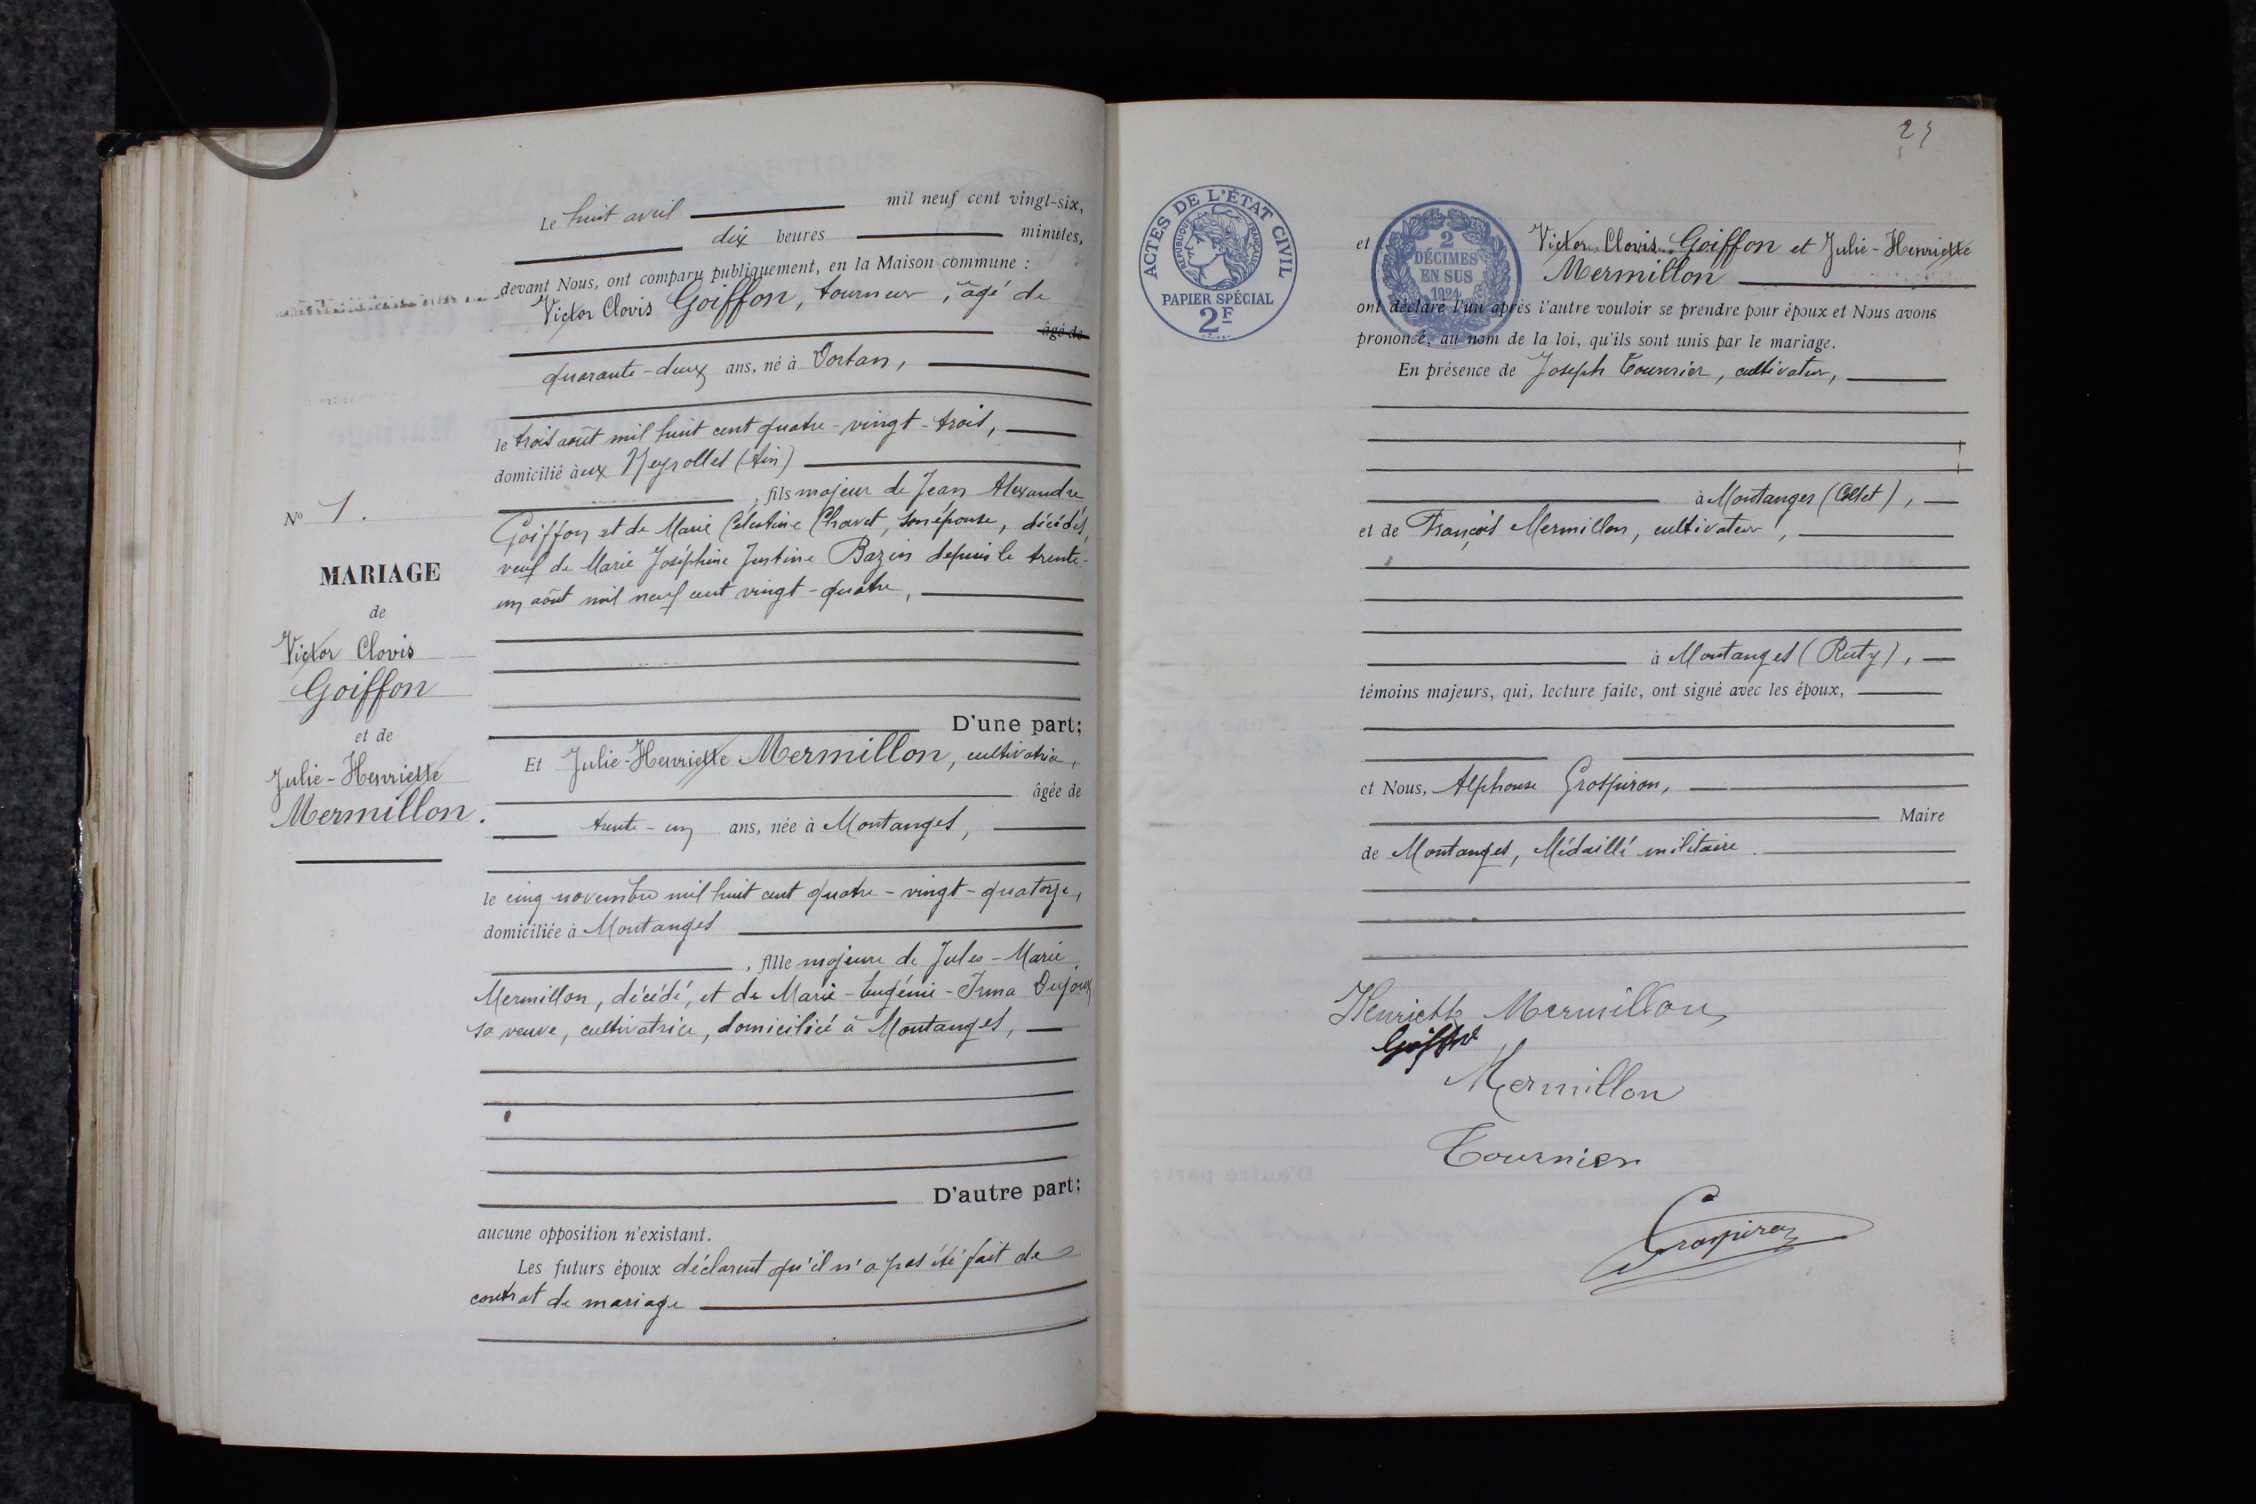 Le huit avril mil neuf cent vingt-six,
dix heures minutes,
devant Nous, ont comparu publiquement, en la Maison commune :
Victor Clovis Goiffon, tourneur, âgé de
âgé de
quarante-deux ans, né à Dortan,
le trois août mil huit cent quatre-vingt-trois,
domicilié àux Neyrolles (Ain)
, fils majeur de Jean Alexandre
Goiffon et de Marie Célestine Chavet, son épouse, décédés,
veuf de Marie Joséphine Justine Bazin depuis le trente-
un août mil neuf cent vingt-quatre,
N° 1.
MARIAGE
de
Victor Clovis
Goiffon
et de
Julie-Henriette
Mermillon.
D'une part;
Et Julie-Henriette Mermillon, cultivatrice,
âgée de
trente-un ans, née à Montanges,
le cinq novembre mil huit cent quatre-vingt-quatorze,
domiciliée à Montanges
, fille majeure de Jules-Marie
Mermillon, décédé, et de Marie-Eugénie-Irma Dujoux
sa veuve, cultivatrice, domiciliée à Montanges,
D'autre part;
aucune opposition n'existant.
Les futurs époux déclarent qu'il n'a pas été fait de
contrat de mariage
ACTES DE L'ÉTAT CIVIL
RÉPUBLIQUE FRANÇAISE
PAPIER SPÉCIAL
2F
2
DÉCIMES
EN SUS
1924
et Victor Clovis Goiffon et Julie-Henriette
Mermillon
ont déclaré l'un après l'autre vouloir se prendre pour époux et Nous avons
prononcé, au nom de la loi, qu'ils sont unis par le mariage.
En présence de Joseph Tournier, cultivateur,
à Montanges (Collet),
et de François Mermillon, cultivateur,
à Montanges (Ruty),
témoins majeurs, qui, lecture faite, ont signé avec les époux,
et Nous, Alphonse Grospiron,
Maire
de Montanges, Médaillé militaire.
Henriette Mermillon
Goiffon
Mermillon
Tournier
Grospiron